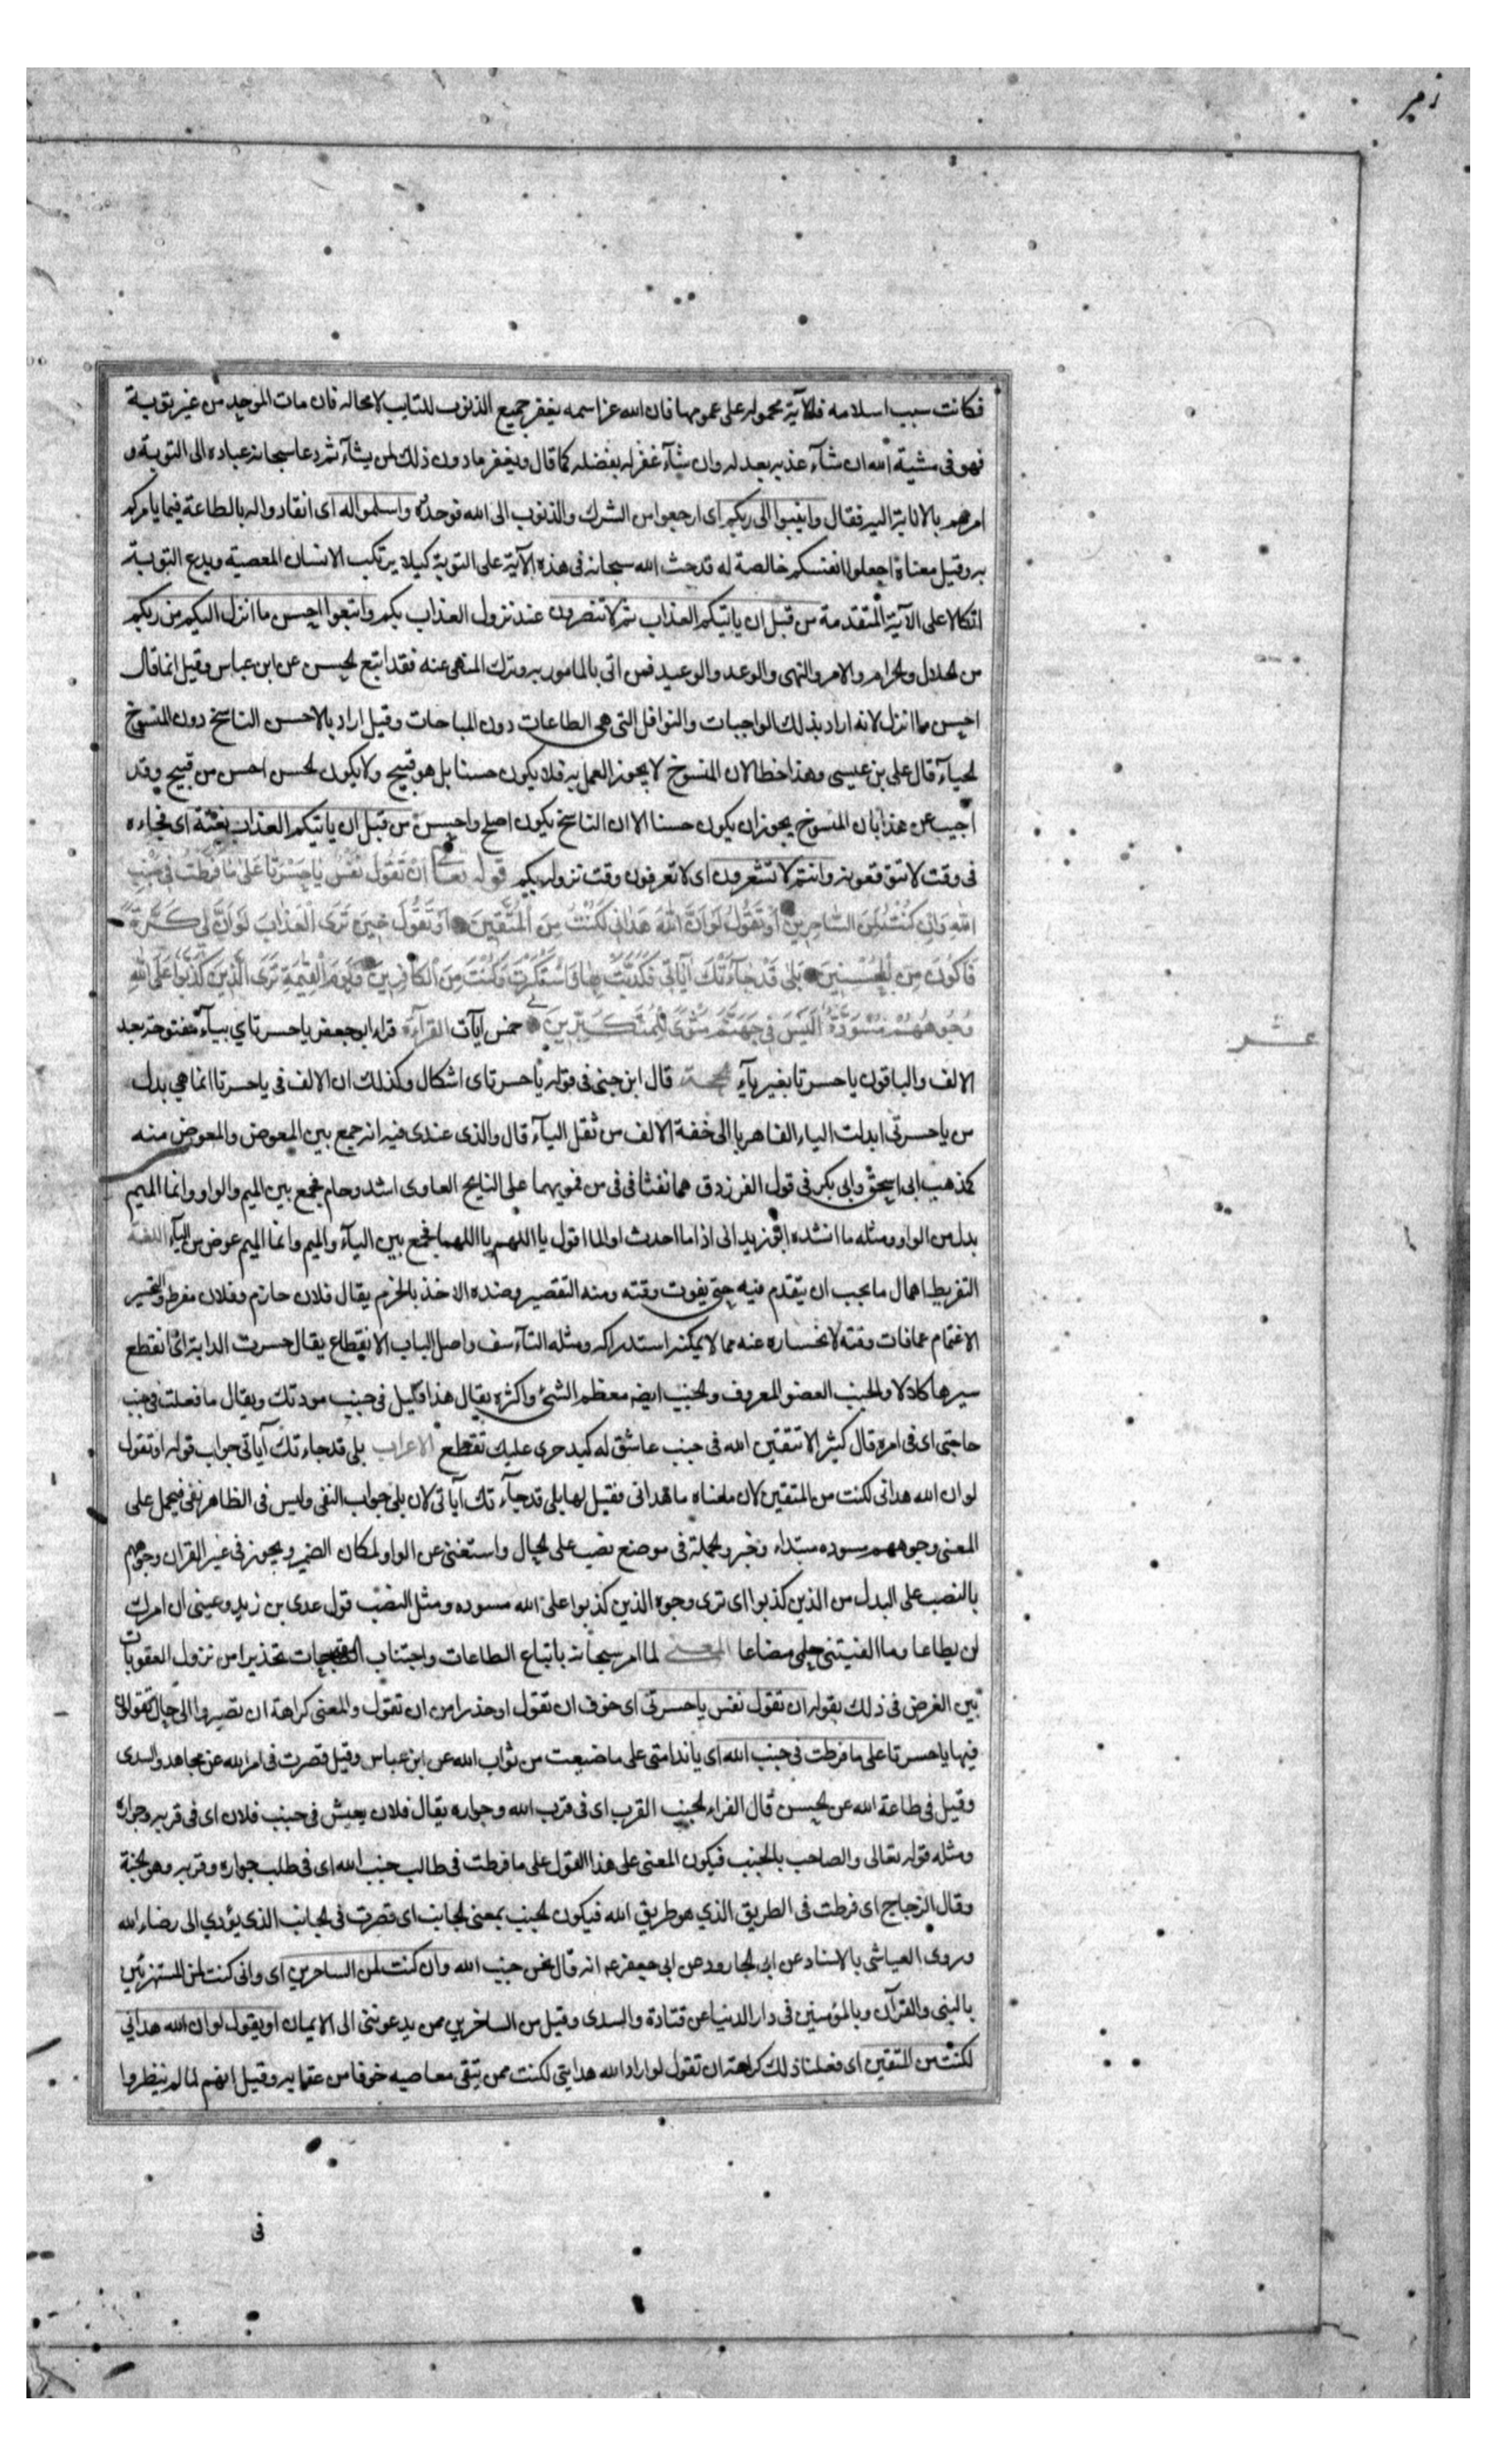 زمر
فكانت سبب اسلامه فالآية محموله على عمومها فان الله عز اسمه يغفر جميع الذنوب للتايب لا محاله فان مات الموحد من غير توبة
فهو فى مشية الله ان شآء عذبه بعدله وان شآء غفر له بفضله كما قال ويغفر ما دون ذلك لمن يشآء ثم دعا سبحانه عباده الى التوبة و
امرهم بالانابة اليه فقال وانيبوا الى ربكم اى ارجعوا من الشرك والذنوب الى الله فوحدوه واسلموا له اى انقادوا له بالطاعة فيما يامركم
به وقيل معناة اجعلوا انفسكم خالصة له قد حث الله سبحانه فى هذه الآية على التوبة كيلا يرتكب الانسان المعصية ويدع التوبة
اتكالا على الآية المتقدمة من قبل ان ياتيكم العذاب ثم لا تنصرون عند نزول العذاب بكم واتبعوا احسن ما انزل اليكم من ربكم
من الحلال والحرام والامر والنهى والوعد والوعيد فمن اتى بالمامور به وترك المنهى عنه فقد اتبع الحسن عن ابن عباس وقيل انما قال
احسن ما انزل لانه اراد بذلك الواجبات والنوافل التى هى الطاعات دون المباحات وقيل اراد بالاحسن الناسخ دون المنسوخ
الجبآء قال على بن عيسى وهذا خطا لان المنسوخ لا يجوز العمل به فلا يكون حسنا بل هو قبيح ولا يكون الحسن احسن من قبيح وقد
اجيب عن هذا بان المنسوخ يجوز ان يكون حسنا الا ان الناسخ يكون اصلح واحسن من قبل ان ياتيكم العذاب بغتة اى فجاءه
فى وقت لا تتوقعونه وانتم لا تشعرون اى لا تعرفون وقت نزوله بكم قوله تعالى اَنْ تَقُولَ نَفْسٌ يَا حَسْرَتَا عَلىٰ مَا فَرَّطْتُ فى جَنْبِ
اللهِ وَاِنْ كُنْتُ لَمِنَ السَّاخِرِينَ اَوْ تَقُولَ لَوْ اَنَّ اللهَ هَدَانِى لَكُنْتُ مِنَ الْمُتَّقِينَ اَوْ تَقُولَ حِينَ تَرَى الْعَذَابَ لَوْ اَنَّ لِى كَرَّةً
فَاَكُونَ مِنَ الْمُحْسِنِينَ بَلىٰ قَدْ جَآءَتْكَ آيَاتِى فَكَذَّبْتَ بِهَا وَاسْتَكْبَرْتَ وَكُنْتَ مِنَ الْكَافِرِينَ وَيَوْمَ الْقِيٰمَةِ تَرَى الَّذِينَ كَذَبُوا عَلَى اللهِ
وُجُوهُهُمْ مُسْوَدَّةٌ اَلَيْسَ فِى جَهَنَّمَ مَثْوًى لِلْمُتَكَبِّرِينَ خمس آيات القراءة قراء ابو جعفر يا حسرتاى بيآء مفتوحة بعد
عشر
الالف والباقون يا حسرتا بغير يآء الحجة قال ابن جنى فى قوله يا حسرتاى اشكال وكذلك ان الالف فى يا حسرتا انما هى بدل
من يا حسرتى ابدلت الياء الفا هربا الى خفة الالف من ثقل اليآء قال والذى عندى فيه انه جمع بين المعوض والمعوض منه
كمذهب ابى اسحق وابى بكر فى قول الفرزدق هما نفثا فى فى من فمويهما على النابح العاوى اشد رجام فجمع بين الميم والواو وانما الميم
بدل من الواو ومثله ما انشده ابو زيد انى اذا ما احدث اقول يا اللهم يا اللهما فجمع بين اليآء والميم وانما الميم عوض من اليآء اللغة
التفريط اهمال ما يجب ان يتقدم فيه حتى يفوت وقته ومنه التقصير وضده الاخذ بالحزم يقال فلان حازم وفلان مفرط والتحسر
الاغتمام مما فات وقته لانحساره عنه مما لا يمكنه استدراكه ومثله التآسف واصل الباب الانقطاع يقال حسرت الدابة اى انقطع
سيرها كلالا والجنب العضو المعروف والجنب ايضا معظم الشئ واكثره يقال هذا قليل فى جنب مودتك ويقال ما فعلت فى جنب
حاجتى اى فى امره قال كثير الا تتقين الله فى جنب عاشق له كبد حرى عليك تقطع الاعراب بلى قد جاءتك آياتى جواب قوله او تقول
لو ان الله هدانى لكنت من المتقين لان معناه ما هدانى فقيل لها بلى قد جآءتك آياتى لان بلى جواب النفى وليس فى الظاهر نفى فيحمل على
المعنى وجوههم مسوده مبتداء وخبر والجملة فى موضع نصب على الحال واستغنى عن الواو لمكان الضمير ويجوز فى غير القران وجوههم
بالنصب على البدل من الذين كذبوا اى ترى وجوه الذين كذبوا على الله مسوده ومثل النصب قول عدى بن زيد دعينى ان امرك
لن يطاعا وما الفيتنى حلمى مضاعا المعنى لما امر سبحانه باتباع الطاعات واجتناب المقبحات تحذيرا من نزول العقوبات
بين الغرض فى ذلك بقوله ان تقول نفس يا حسرتى اى خوف ان تقول او حذرا من ان تقول والمعنى كراهة ان تصيروا الى حال تقولون
فيها يا حسرتا على ما فرطت فى جنب الله اى يا ندامتى على ما ضيعت من ثواب الله عن ابن عباس وقيل قصرت فى امر الله عن مجاهد والسدى
وقيل فى طاعة الله عن الحسن قال الفراء الجنب القرب اى فى قرب الله وجواره يقال فلان يعيش فى جنب فلان اى فى قربه وجواره
ومثله قوله تعالى والصاحب بالجنب فيكون المعنى على هذا القول على ما فرطت فى طالب جنب الله اى فى طلب جواره وقربه وهو الجنة
وقال الزجاج اى فرطت فى الطريق الذي هو طريق الله فيكون الجنب بمعنى الجانب اى قصرت فى الجانب الذى يؤدي الى رضاء الله
وروى العياشى بالاسناد عن ابى الجارود عن ابى جعفر ع انه قال نحن جنب الله وان كنت لمن الساخرين اى وانى كنت لمن المستهزئين
بالنبى والقرآن وبالمؤمنين فى دار الدنيا عن قتادة والسدى وقيل من الساخرين ممن يدعوننى الى الايمان او يقول لو ان الله هدانى
لكنت من المتقين اى فعلنا ذلك كراهة ان تقول لو اراد الله هدايتى لكنت ممن يتقى معاصيه خوفا من عقابه وقيل انهم لما لم ينظروا
فى